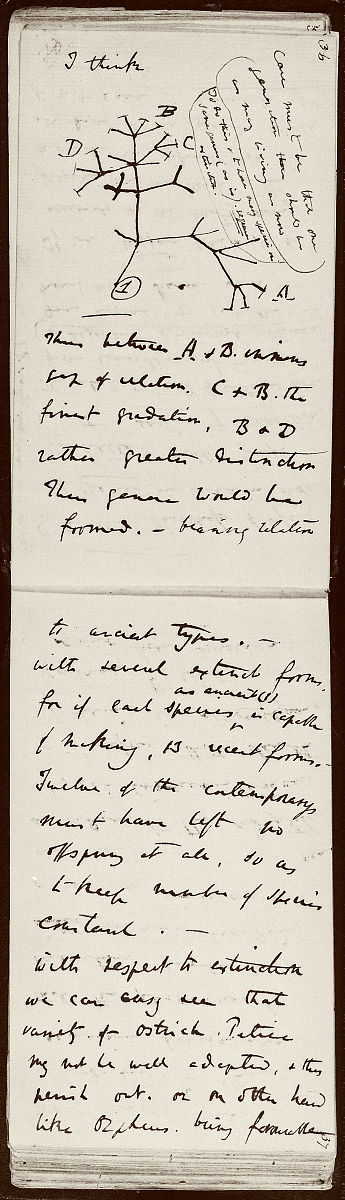 36
I think
Case must be that one
generation then should be
as many living as now
To do this & to have many species in
same genus (as is). requires
extinction.
B
C
D
A
1
Thus between A & B. immens
gap of relation. C & B. the
finest gradation, B & D
rather greater distinction
Thus genera would be
formed. — bearing relation
to ancient types. —
with several extinct forms,
for if each species as ancient (1)
is capable
of making, 13 recent forms. —
Twelve of the contemporarys
must have left no
offspring at all, so as
to keep number of species
constant. —
With respect to extinction
we can easy see that
variety of ostrich. Petise
may not be well adapted, & thus
perish out. or on other hand
like Orpheus. being favourable
37